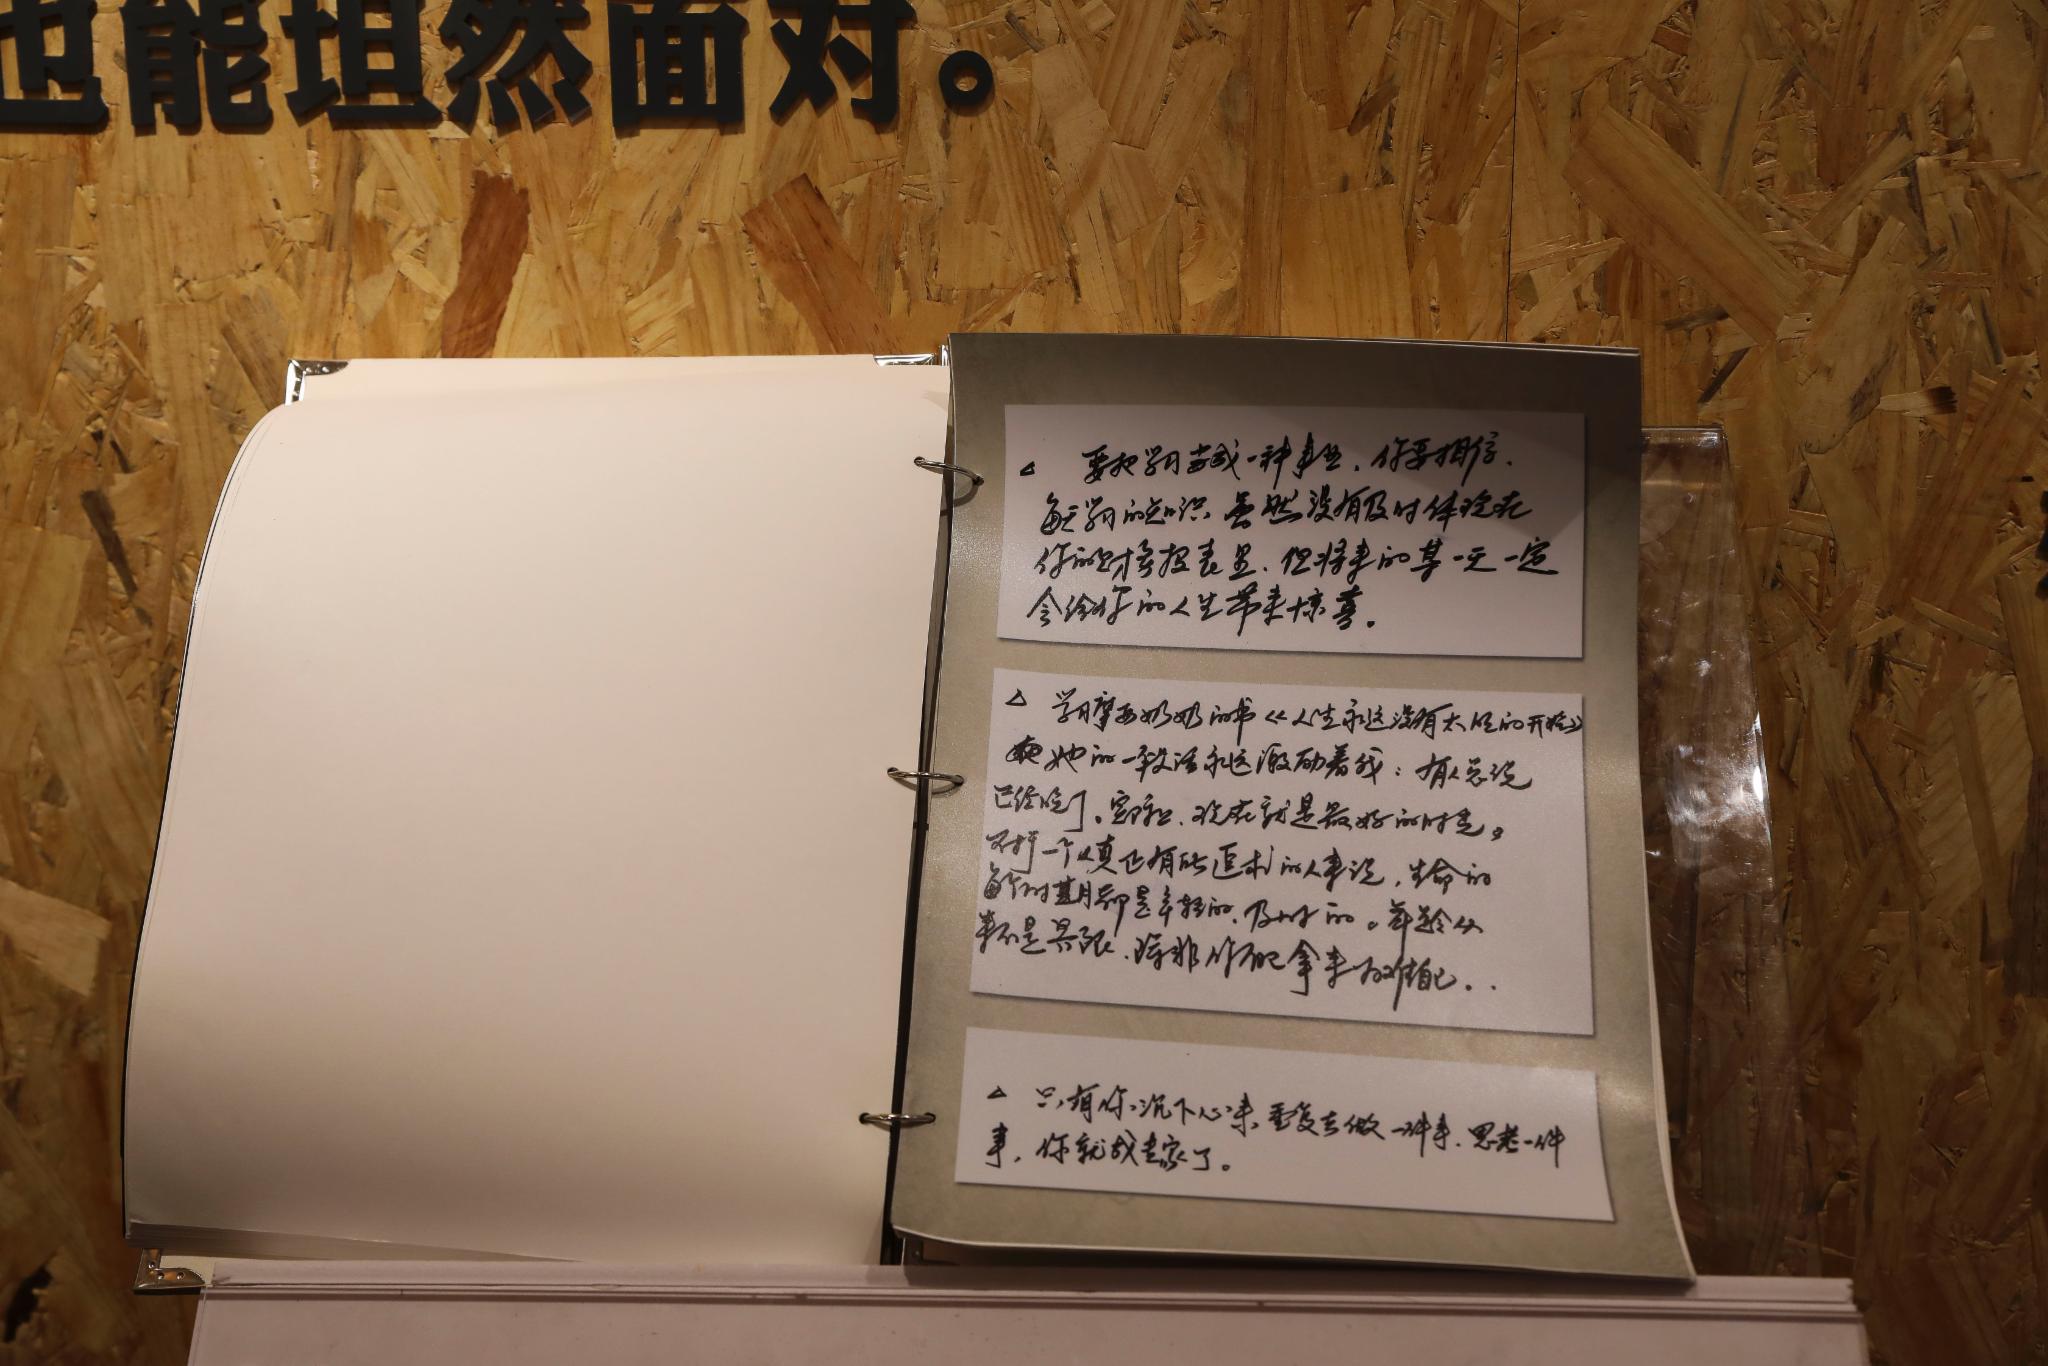 也能坦然面对。
△ 要把学习当成一种事业，你要相信，
每天学习的知识 虽然没有及时体现在
你的财务报表里，但将来的某一天一定
会给你的人生带来惊喜。
△ 学习摩西奶奶的书《人生永远没有太晚的开始》
她的一段话永远激励着我：有人总说
已经晚了。实际上，现在就是最好的时光。
对于一个真正有所追求的人来说，生命的
每个时期都是年轻的、及时的。年龄从
来不是界限，除非你自己拿来为难自己..
△ 只有你沉下心来，重复去做一件事，思考一件
事，你就成专家了。